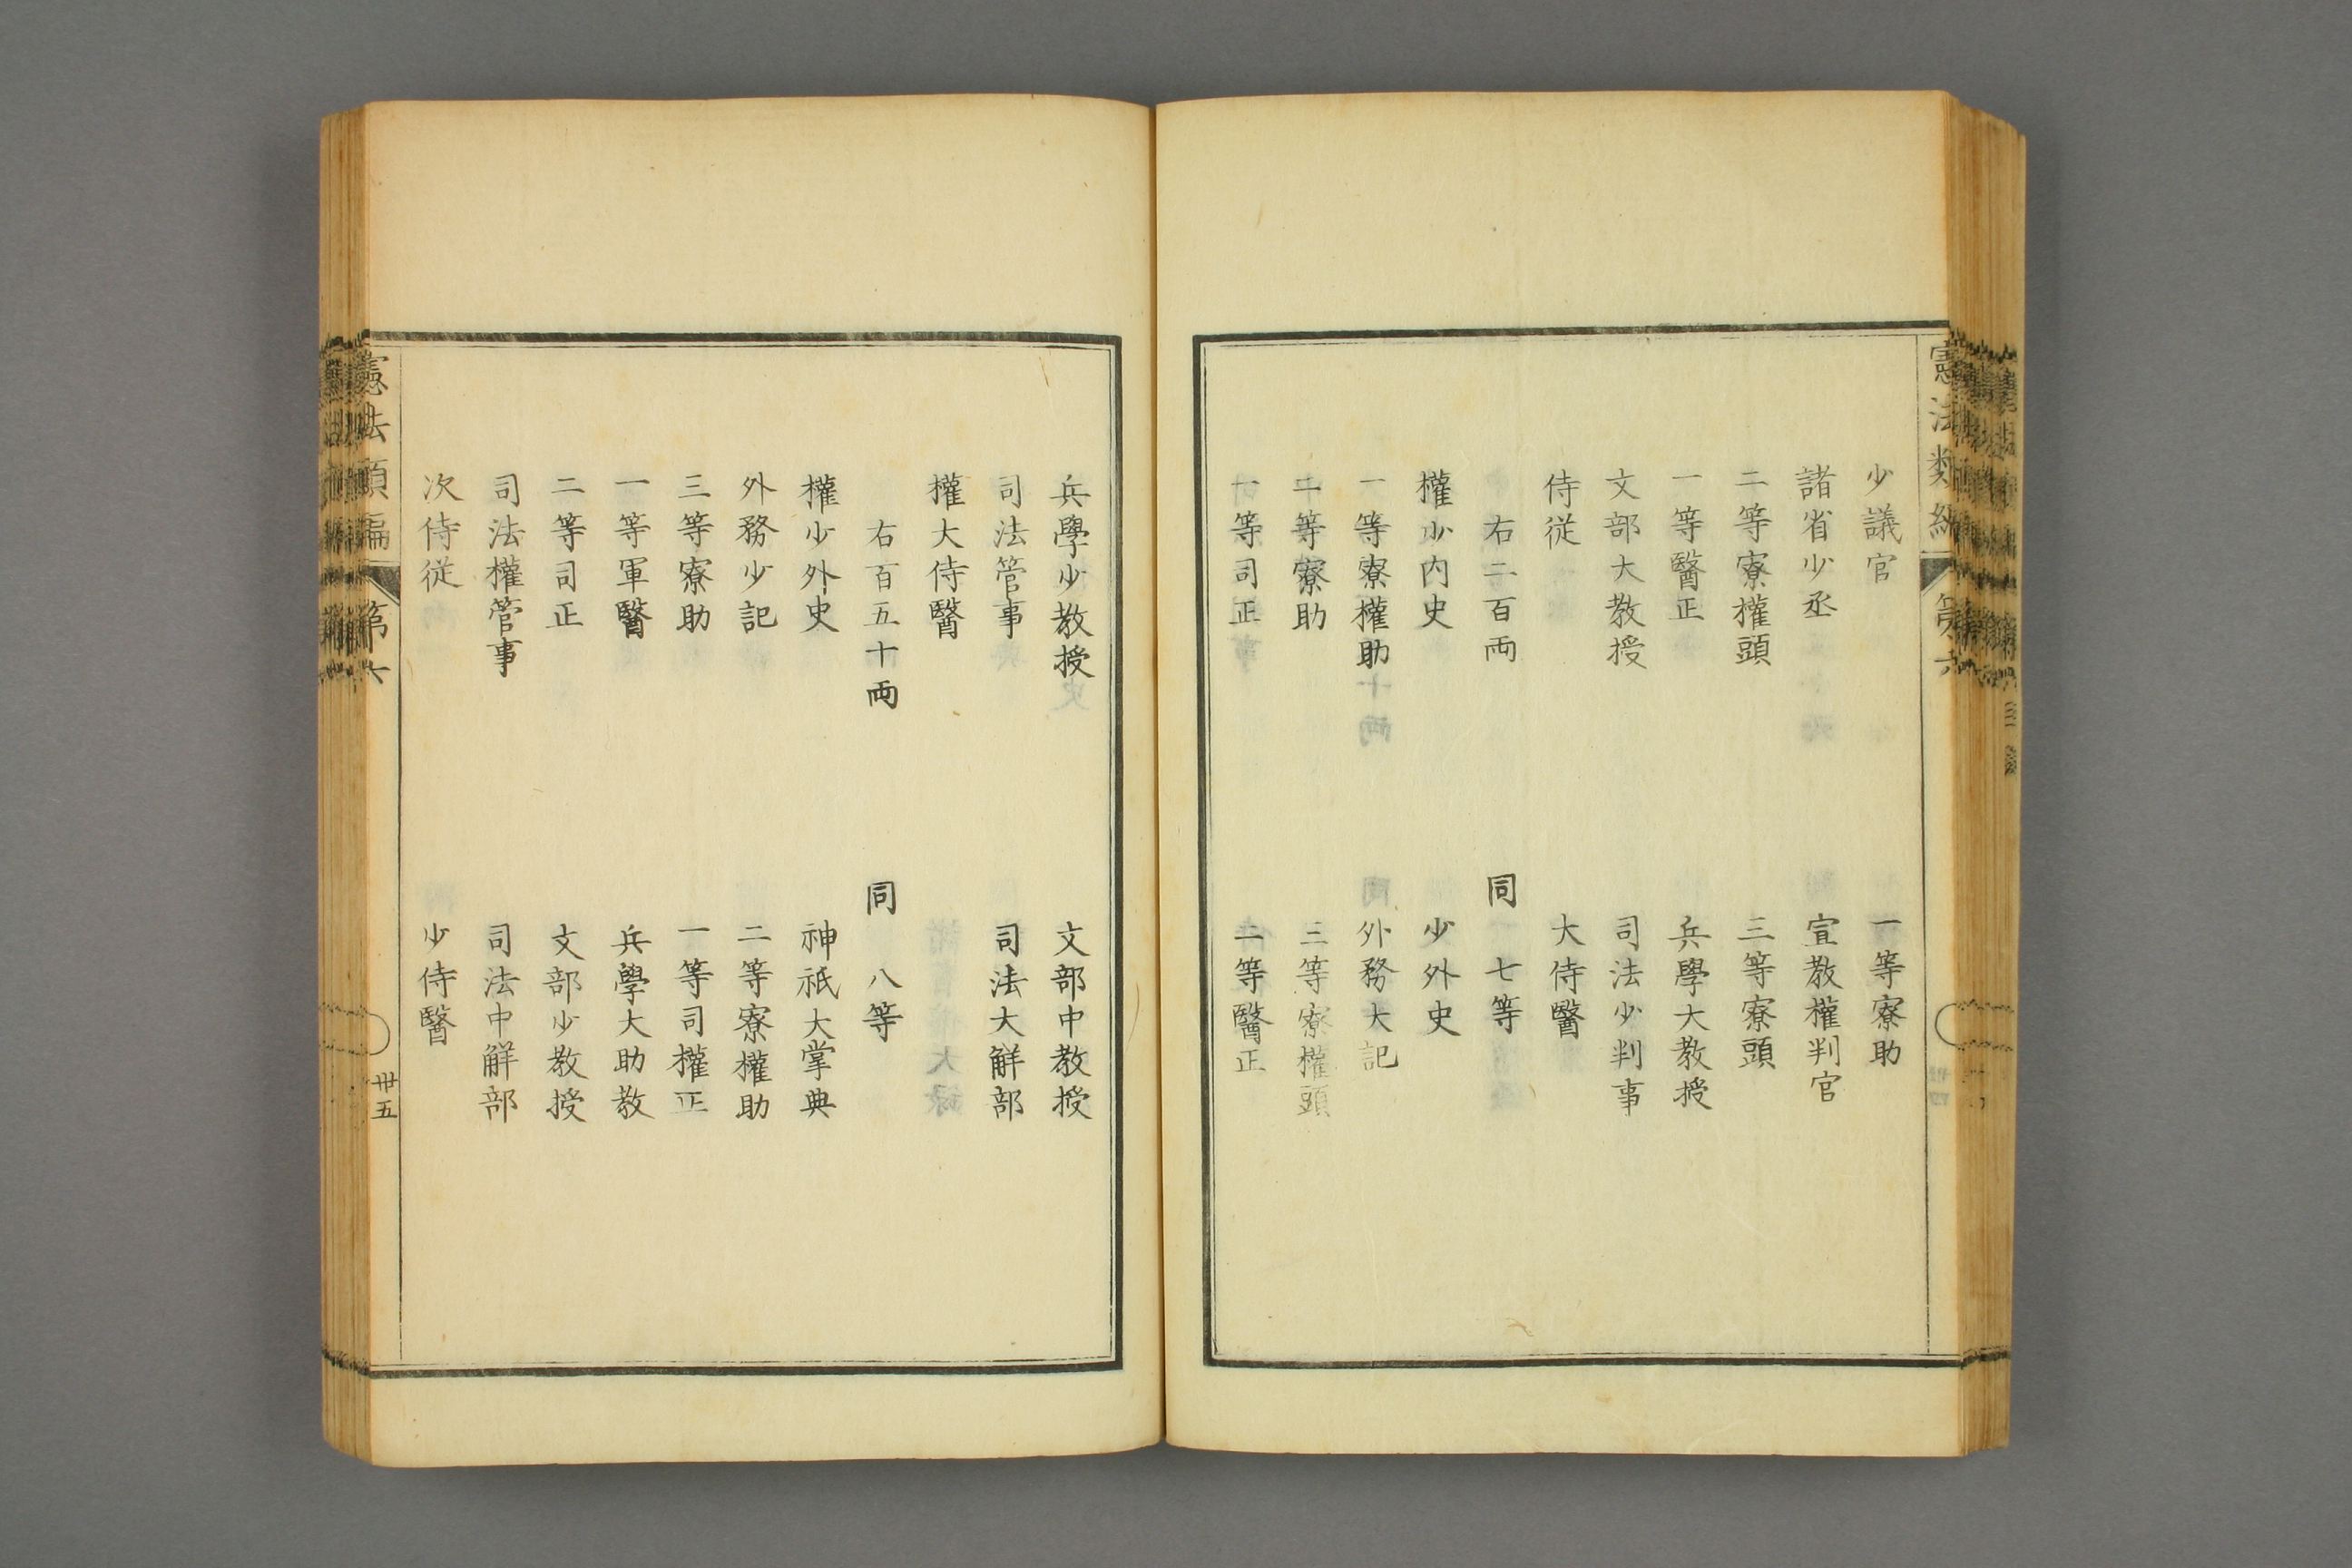 憲法類編
第六
少議官 一等寮助
諸省少丞 宣教權判官
二等寮權頭 三等寮頭
一等醫正 兵學大教授
文部大教授 司法少判事
侍従 大侍醫
右二百両 同 七等
權少内史 少外史
一等寮權助 外務大記
二等寮助 三等寮權頭
一等司正 二等醫正
兵學少教授 文部中教授
司法管事 司法大解部
權大侍醫
右百五十両 同 八等
權少外史 神祇大掌典
外務少記 二等寮權助
三等寮助 一等司權正
一等軍醫 兵學大助教
二等司正 文部少教授
司法權管事 司法中解部
次侍従 少侍醫
憲法類編
第六
卅五